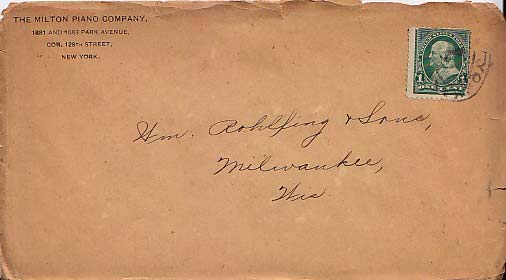 THE MILTON PIANO COMPANY,
1881 AND 1883 PARK AVENUE,
COR. 128TH STREET,
NEW YORK.
1
ONE CENT
Wm. Rohlfing & Sons,
Milwaukee,
Wis.